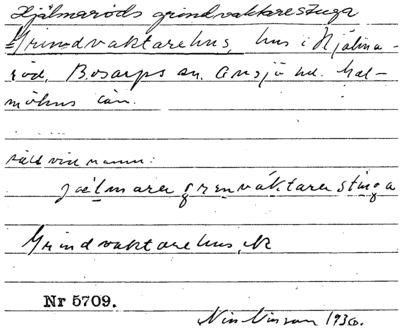 Hjälmaröds grindvaktarestuga
Grindvaktarehus, hus i Hjälma-
röd, Bosarps sn. Onsjö hd. Mal-
möhus län.
sålt vid namn:
jælmara grinvåktarestuga
Grindvaktarehus, N
Nr 5709.
1930.